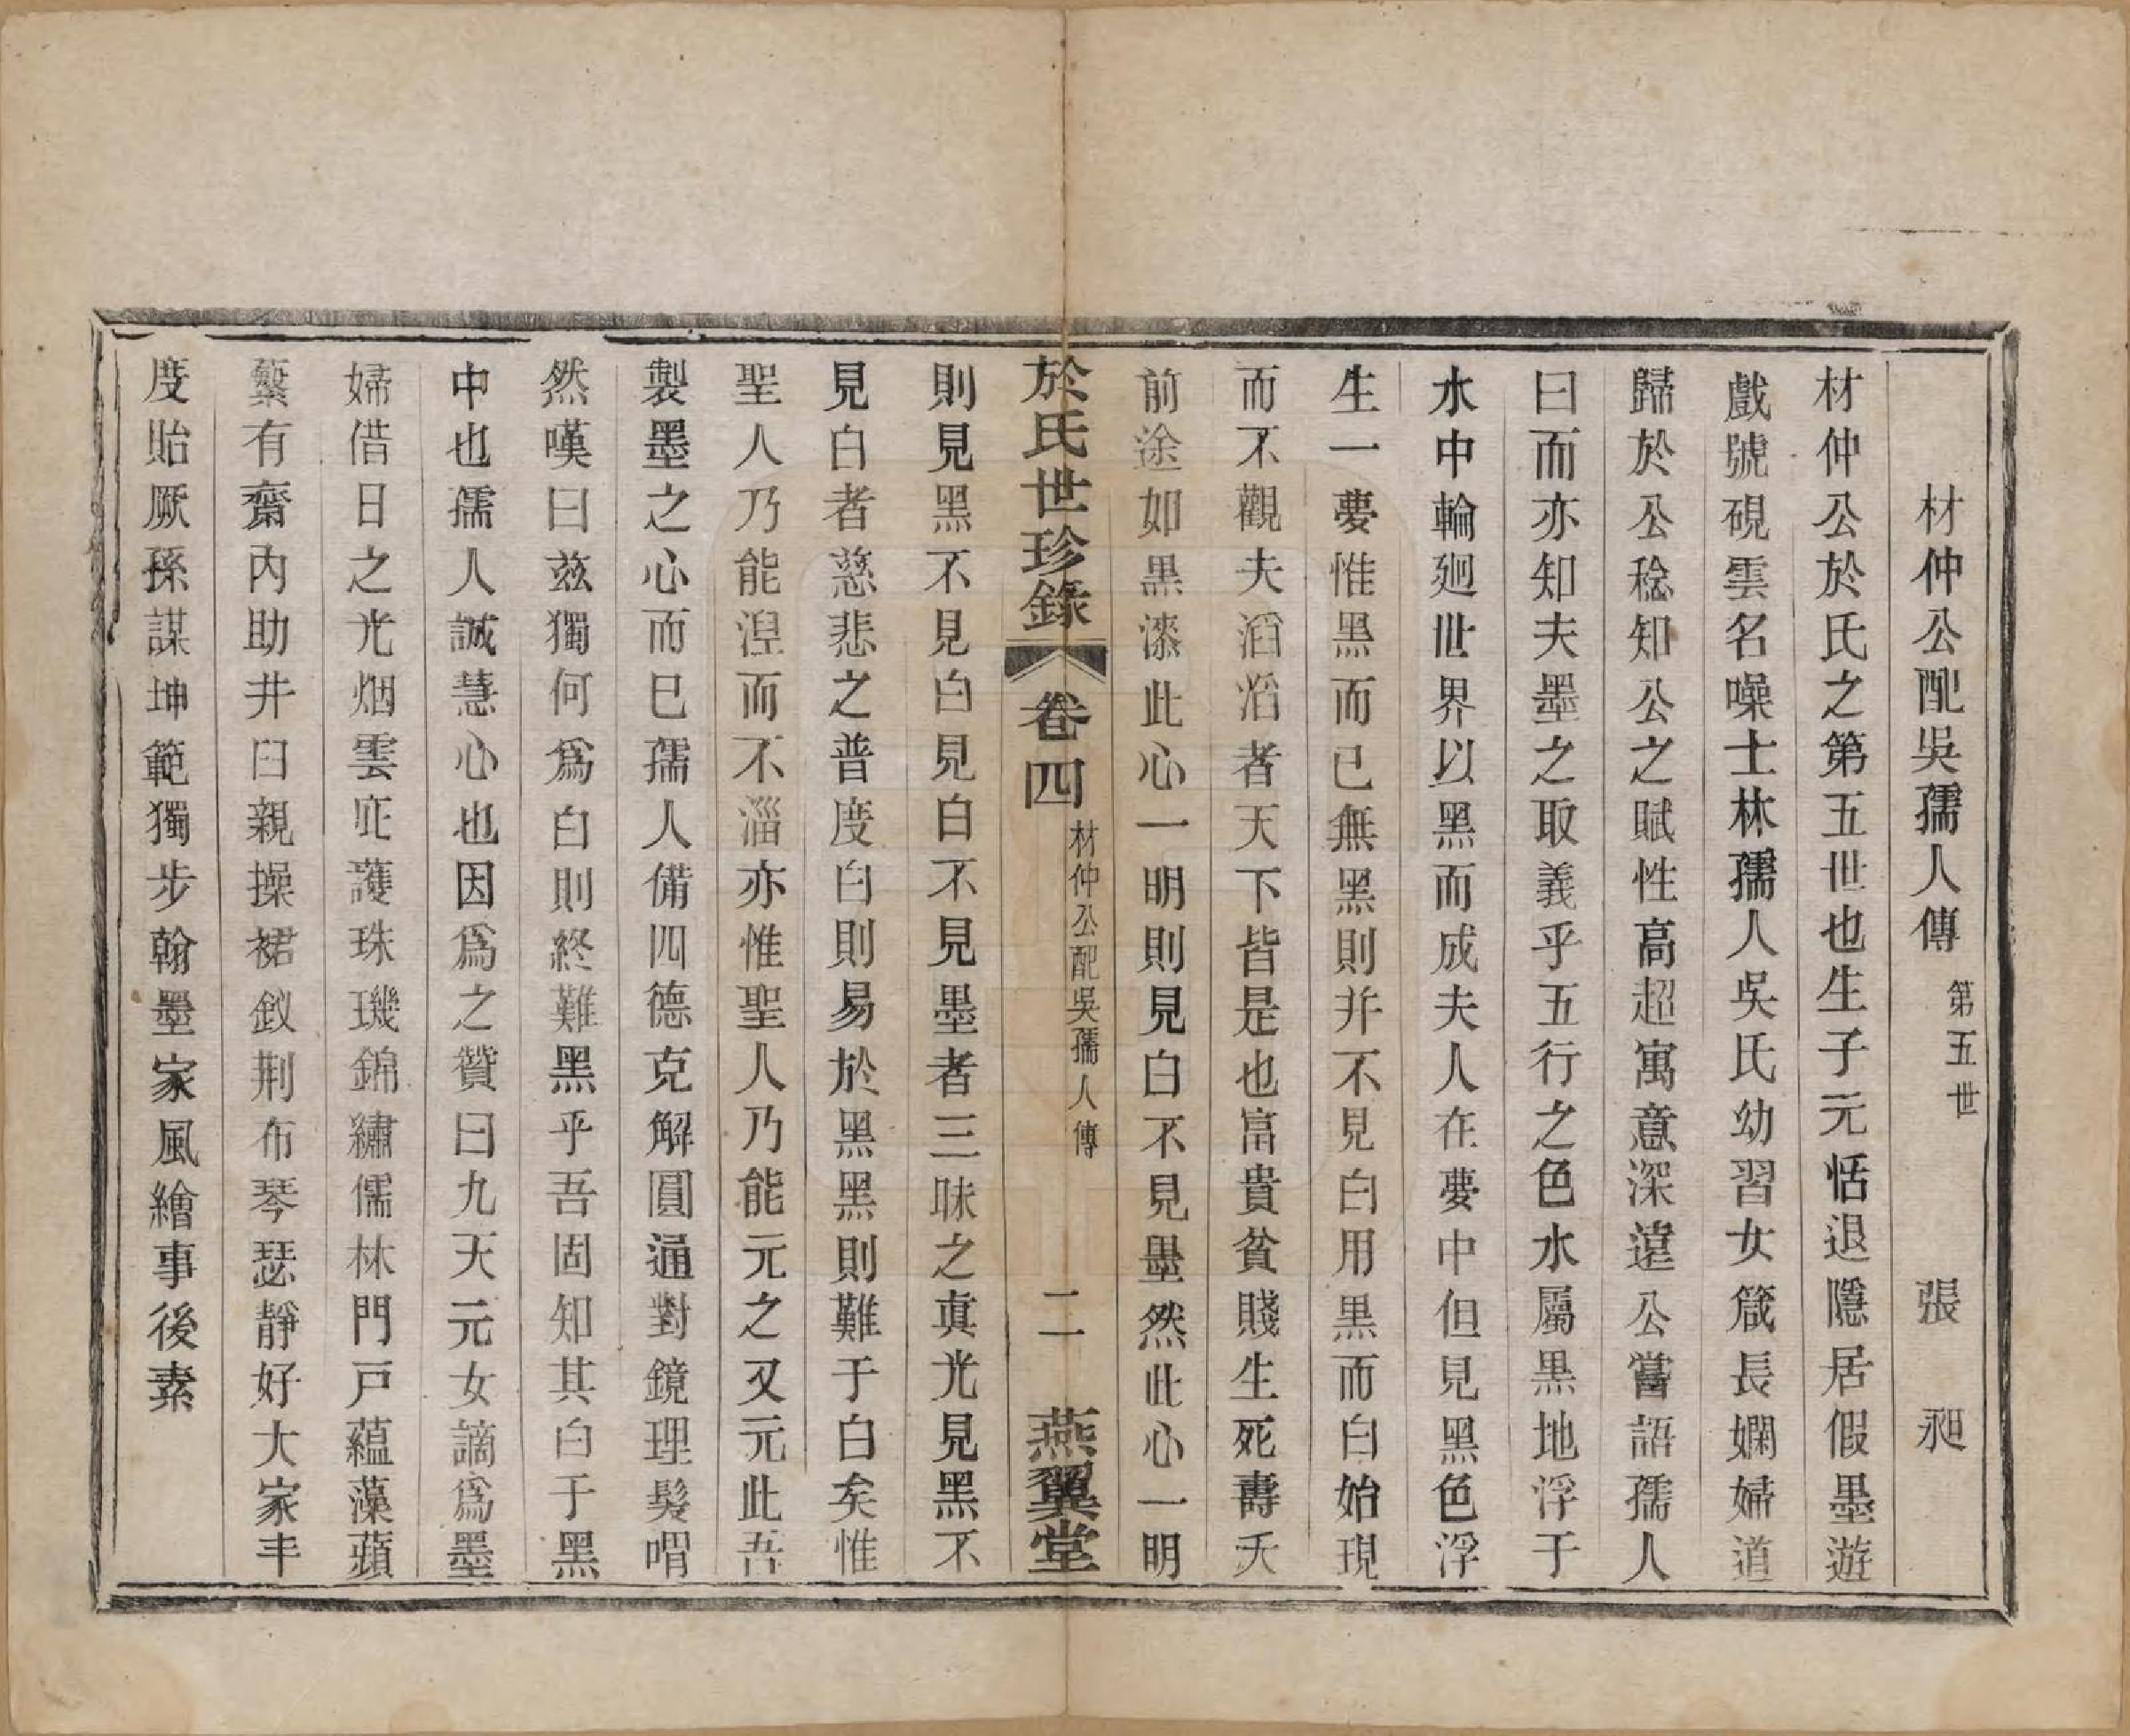 材仲公配吳孺人傳 第五世 張昶
材仲公於氏之第五世也生子元恬退隱居假墨遊
戲號硯雲名噪士林孺人吳氏幼習女箴長嫻婦道
歸於公稔知公之賦性高超寓意深遠公嘗語孺人
曰而亦知夫墨之取義乎五行之色水屬黑地浮于
水中輪廻世界以黑而成夫人在夢中但見黑色浮
生一夢惟黑而已無黑則并不見白用黑而白始現
而不觀夫滔滔者天下皆是也富貴貧賤生死壽夭
前途如黑漆此心一明則見白不見墨然此心一明
於氏世珍錄 卷四 材仲公配吳孺人傳 二 燕翼堂
則見黑不見白見白不見墨者三昧之眞光見黑不
見白者慈悲之普度白則易於黑黑則難于白矣惟
聖人乃能湼而不淄亦惟聖人乃能元之又元此吾
製墨之心而已孺人備四德克解圓通對鏡理髮喟
然嘆曰兹獨何爲白則終難黑乎吾固知其白于黑
中也孺人誠慧心也因爲之贊曰九天元女謫爲墨
婦借日之光烟雲庇護珠璣錦繡儒林門戸蘊藻蘋
蘩有齋內助井臼親操裙釵荆布琴瑟靜好大家丰
度貽厥孫謀坤範獨步翰墨家風繪事後素